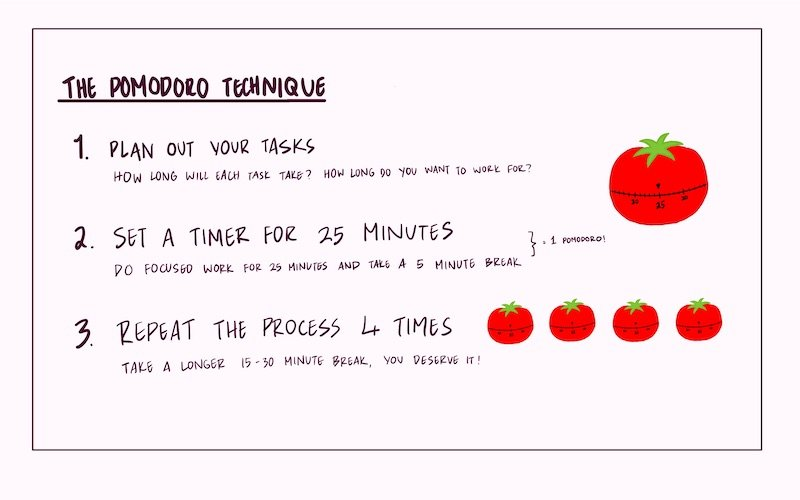 THE POMODORO TECHNIQUE
1. PLAN OUT YOUR TASKS
HOW LONG WILL EACH TASK TAKE? HOW LONG DO YOU WANT TO WORK FOR?
2. SET A TIMER FOR 25 MINUTES
DO FOCUSED WORK FOR 25 MINUTES AND TAKE A 5 MINUTE BREAK
} = 1 POMODORO!
3. REPEAT THE PROCESS 4 TIMES
TAKE A LONGER 15-30 MINUTE BREAK, YOU DESERVE IT!
25